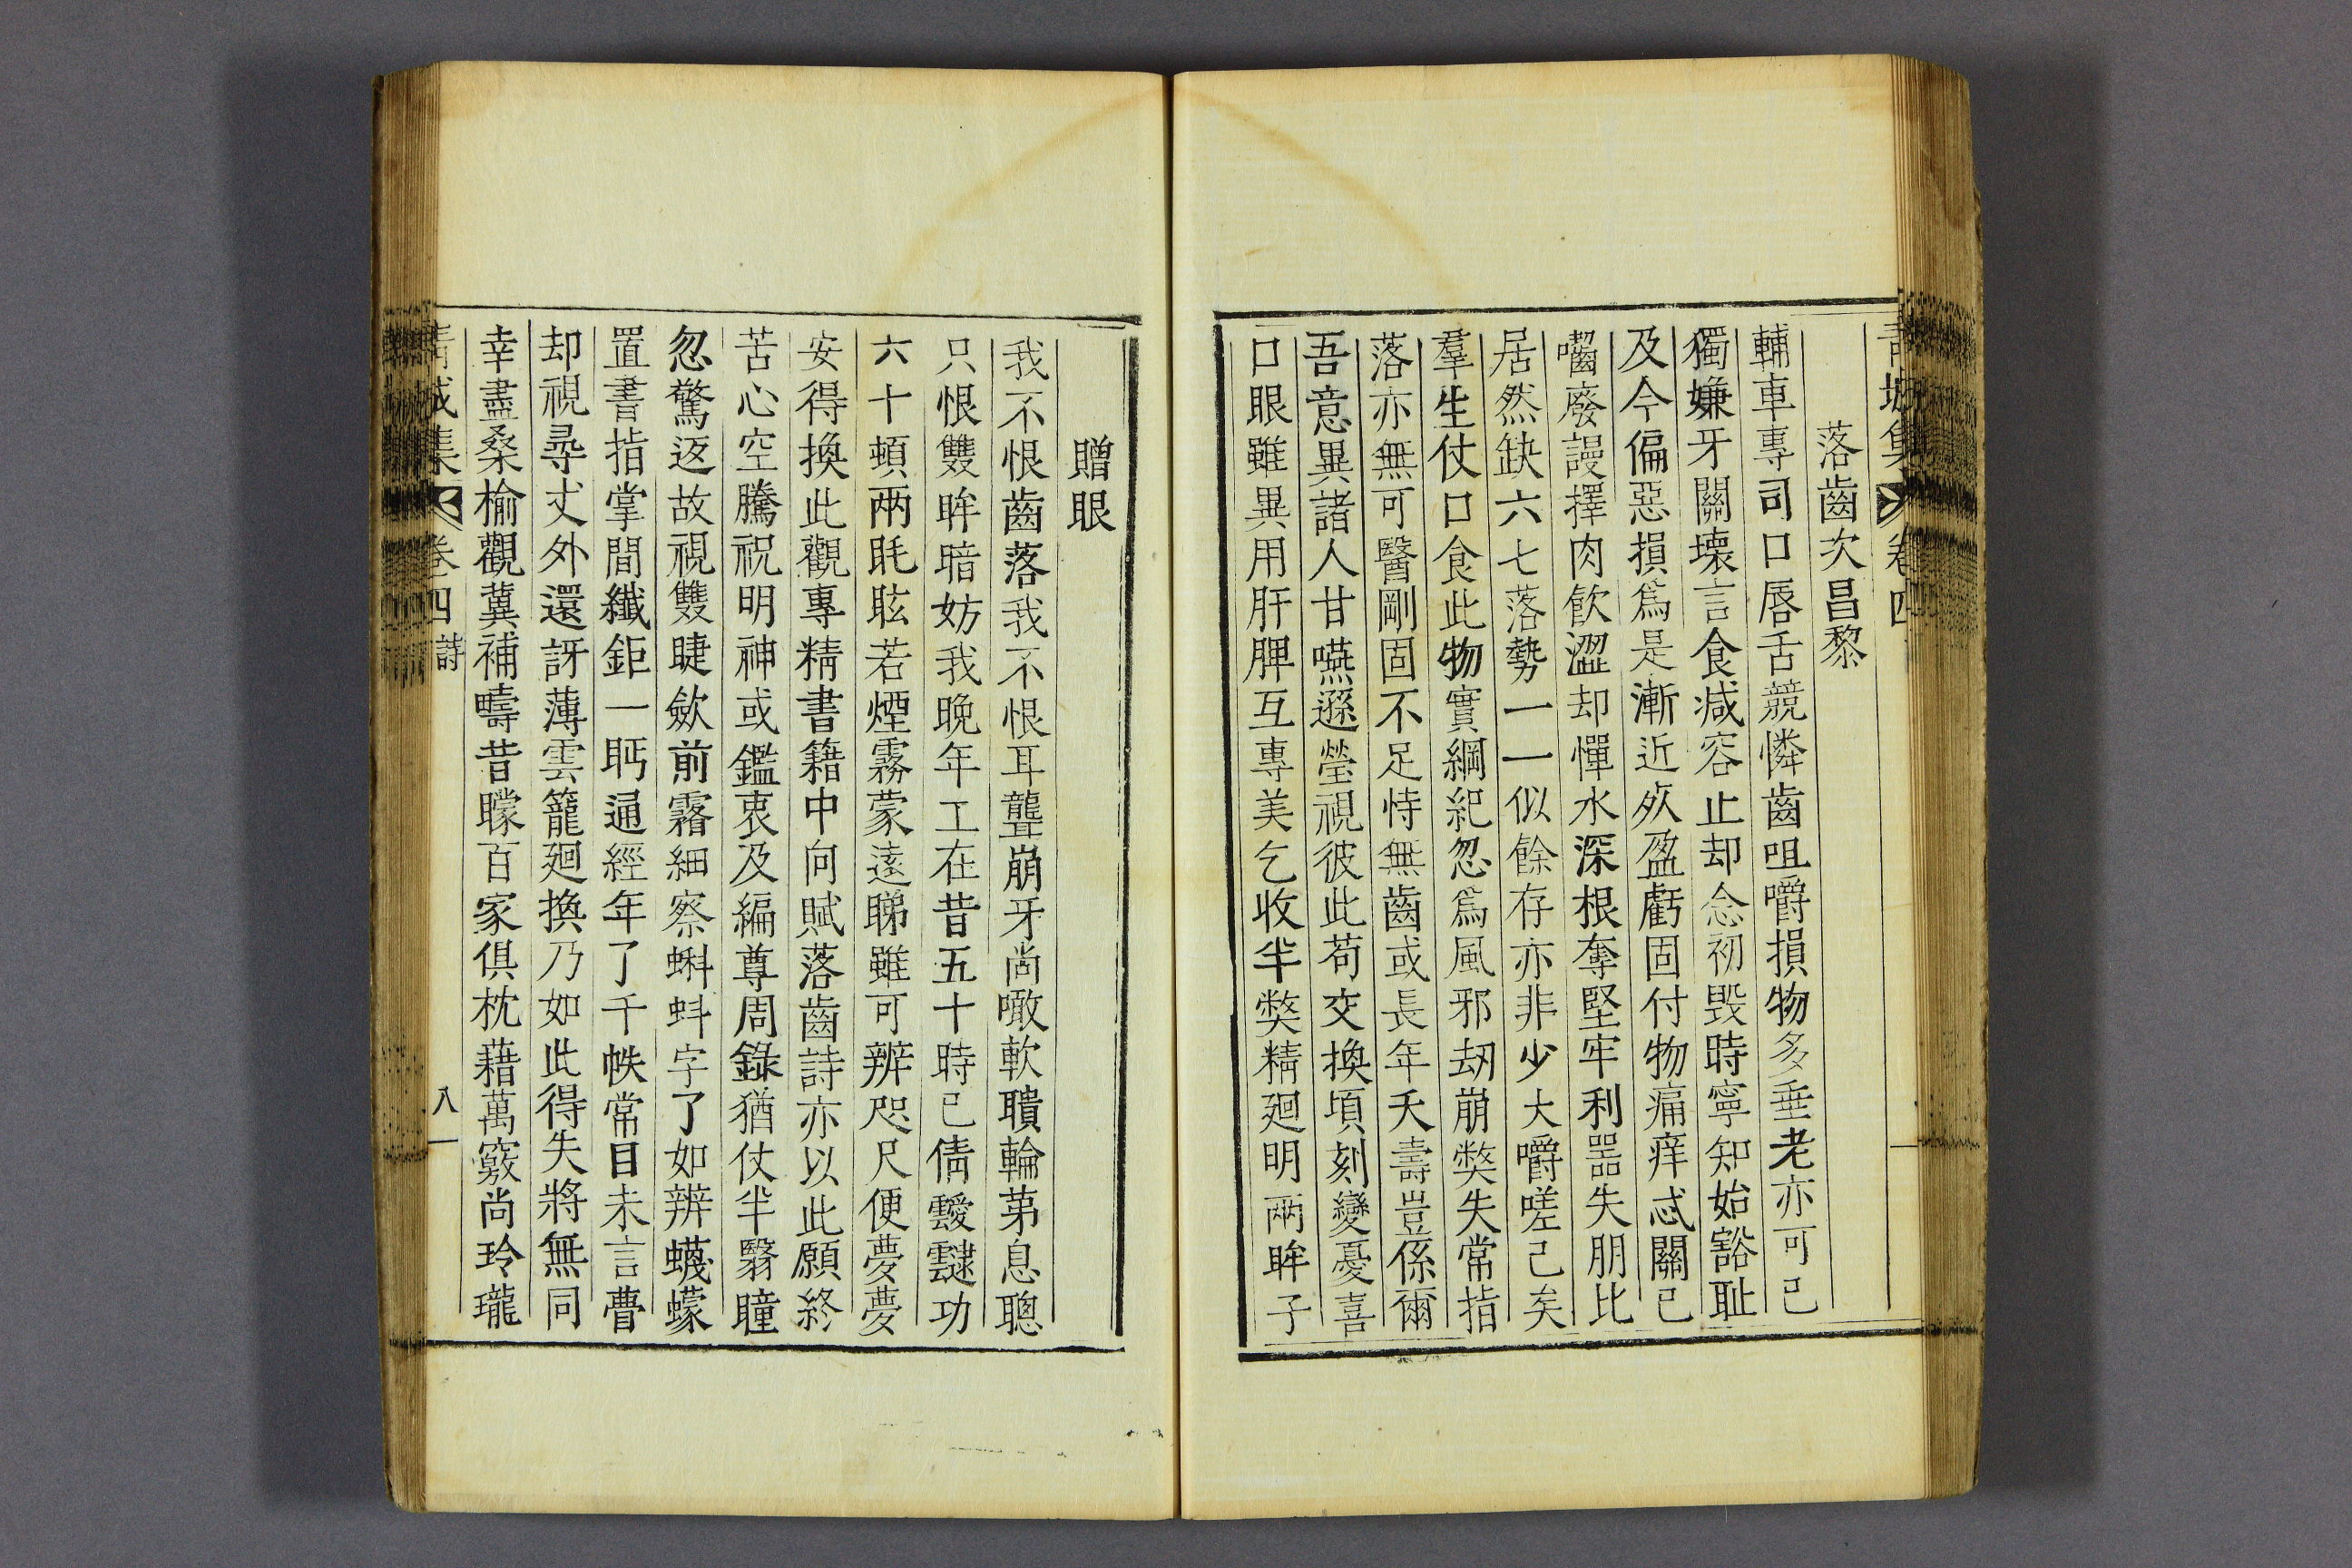 青城集 卷四
落齒次昌黎
輔車專司口唇舌競憐齒咀嚼損物多垂老亦可已
獨嫌牙關壞言食減容止却念初毀時寧知始豁恥
及今偏惡損爲是漸近死盈虧固付物痛痒忒關己
囓廢謾擇肉飲澀却憚水深根奪堅牢利噐失朋比
居然缺六七落勢一一似餘存亦非少大嚼嗟已矣
羣生仗口食此物實綱紀忽爲風邪刼崩弊失常指
落亦無可醫剛固不足恃無齒或長年夭壽豈係爾
吾意異諸人甘嚥遜瑩視彼此苟交換頃刻變憂喜
口眼雖異用肝脾互專美乞收半弊精廻明兩眸子
贈眼
我不恨齒落我不恨耳聾崩牙尚噉軟聵輪苐息聰
只恨雙眸暗妨我晚年工在昔五十時已倩靉靆功
六十頓兩眊眩若煙霧蒙遠睇雖可辨咫尺便夢夢
安得換此觀專精書籍中向賦落齒詩亦以此願終
苦心空騰祝明神或鑑衷及編尊周錄猶仗半翳瞳
忽驚返故視雙睫歛前霿細察蝌蚪字了如辨蠛蠓
置書指掌間纖鉅一眄通經年了千帙常日未言瞢
却視尋丈外還訝薄雲籠廻換乃如此得失將無同
幸盡桑榆觀冀補疇昔矇百家俱枕藉萬竅尚玲瓏
青城集 卷四 詩 八